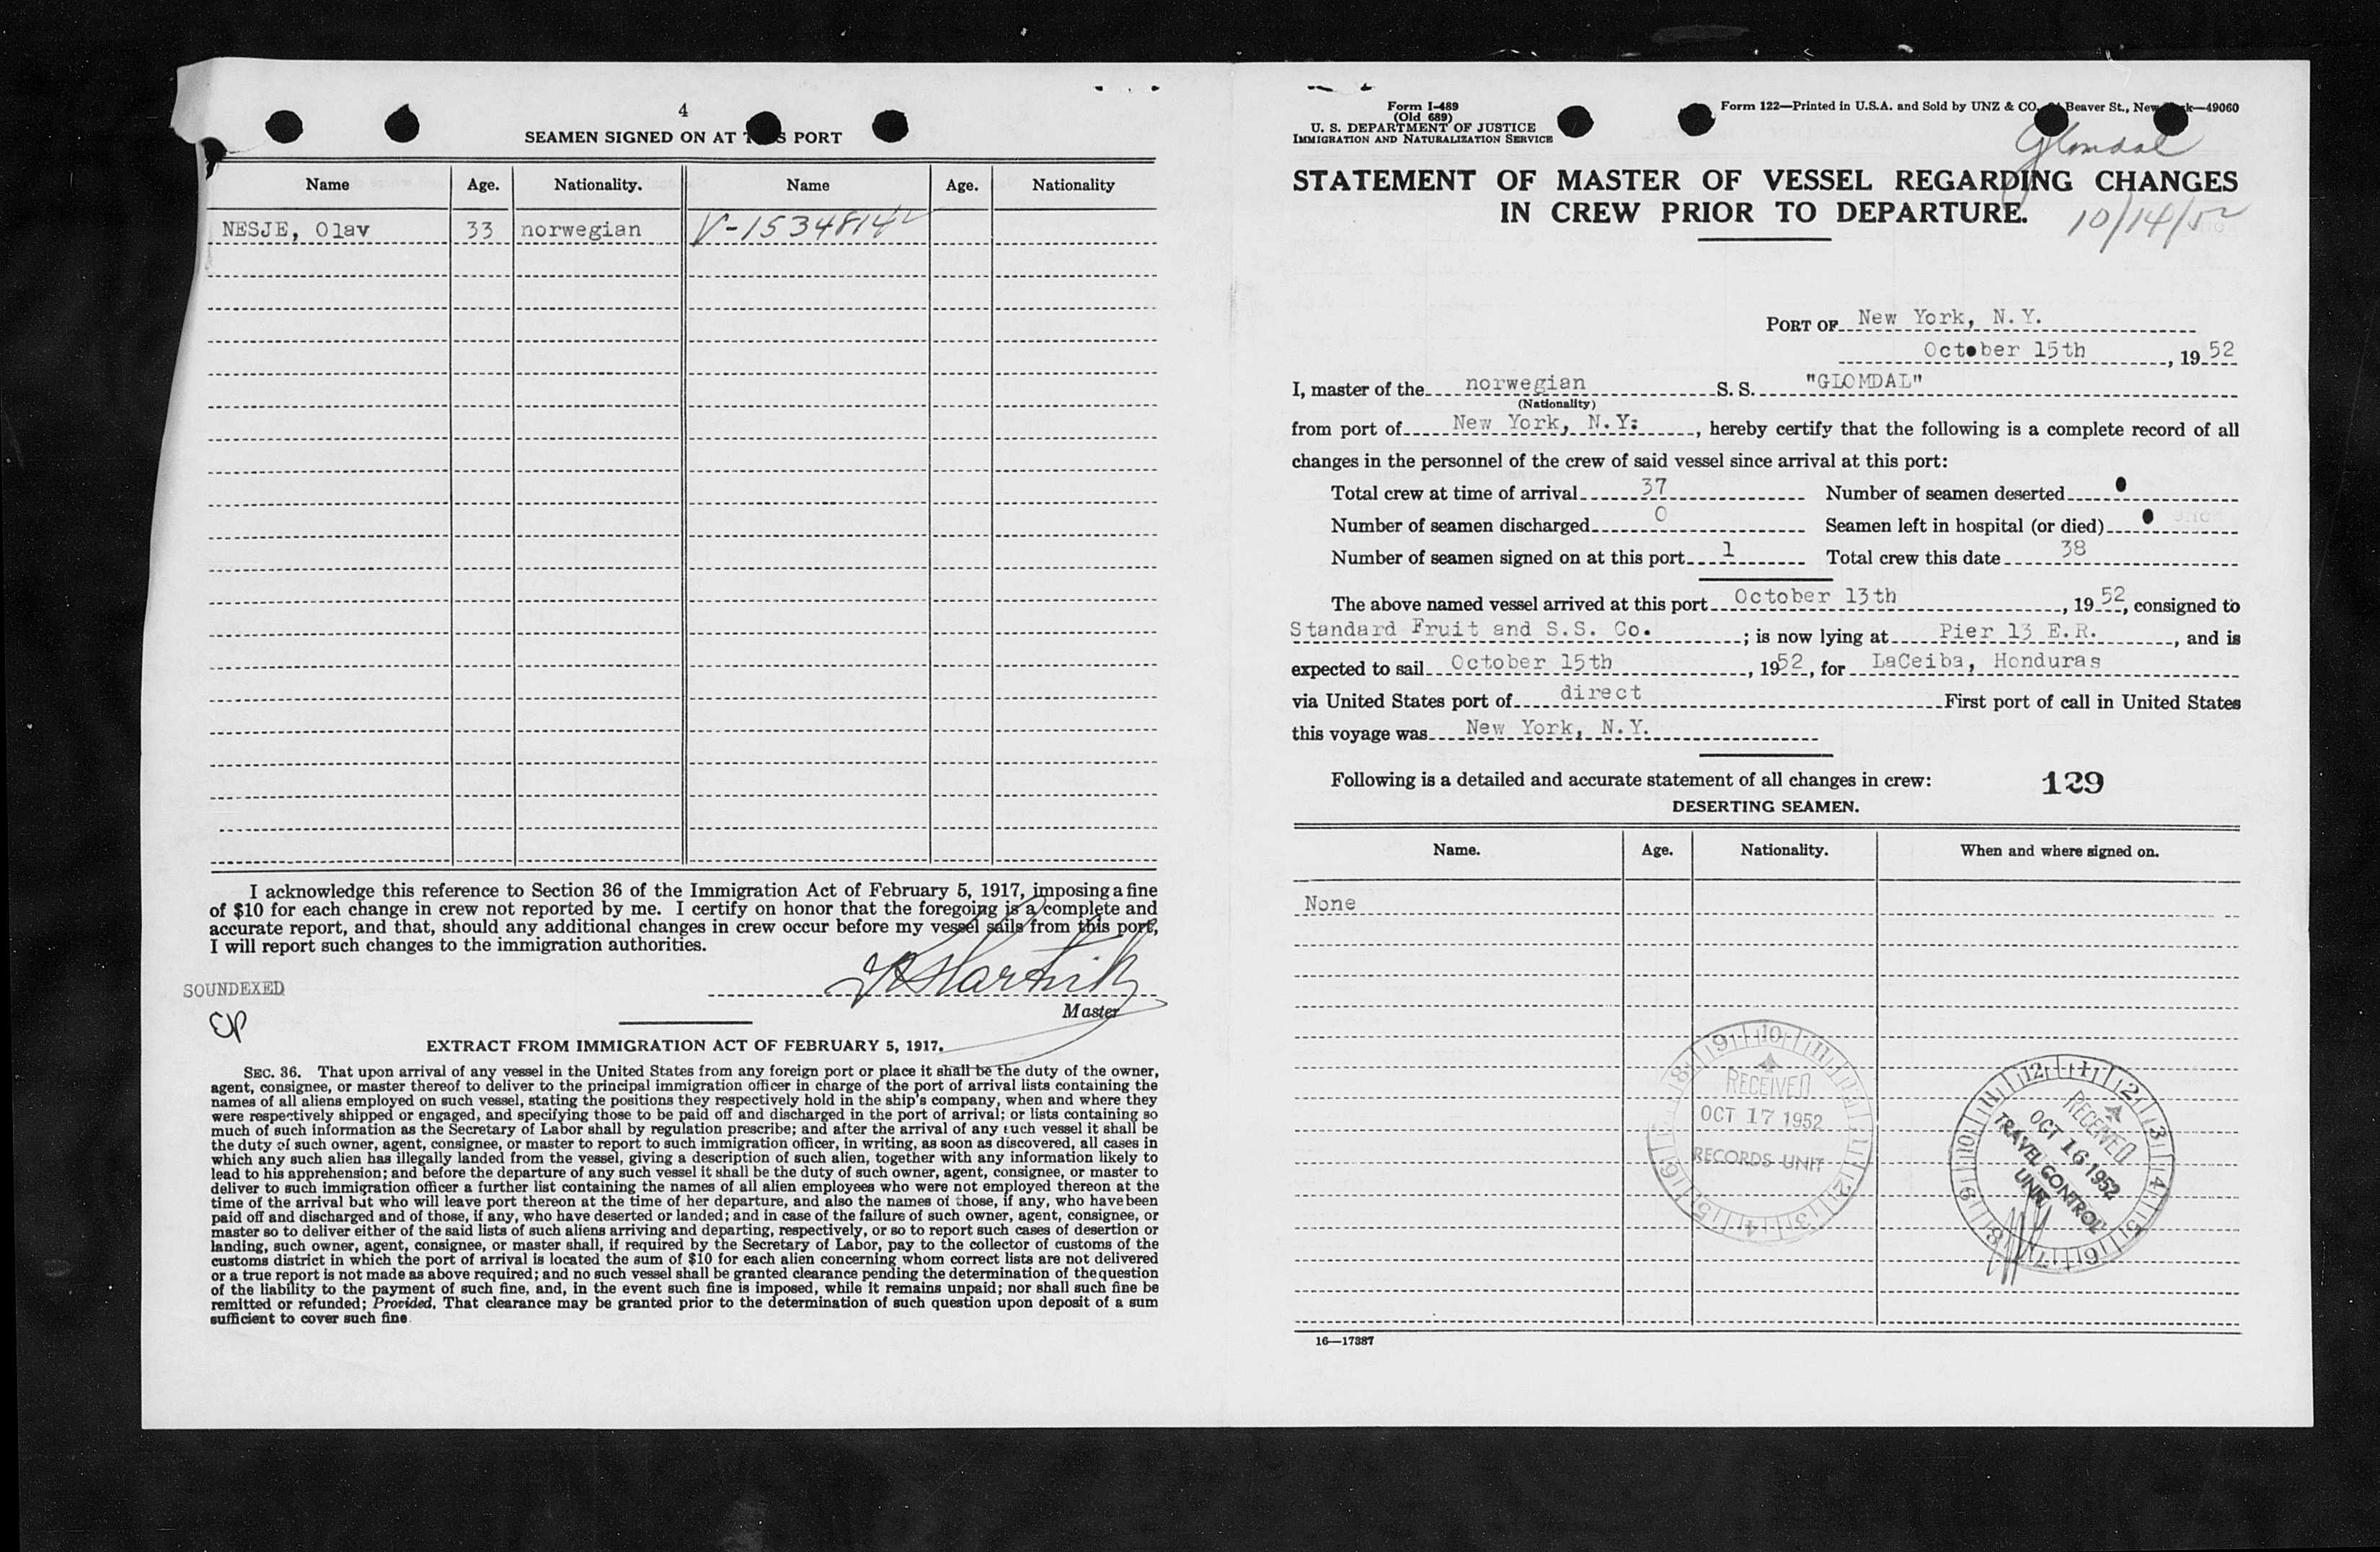 4
SEAMEN SIGNED ON AT PORT
Name Age. Nationality. Name Age. Nationality
NESJE, Olav 33 norwegian V-1534814
I acknowledge this reference to Section 36 of the Immigration Act of February 5, 1917, imposing a fine
of $10 for each change in crew not reported by me. I certify on honor that the foregoing is a complete and
accurate report, and that, should any additional changes in crew occur before my vessel sails from this port,
I will report such changes to the immigration authorities.
SOUNDEXED
Master
EXTRACT FROM IMMIGRATION ACT OF FEBRUARY 5, 1917.
SEC. 36. That upon arrival of any vessel in the United States from any foreign port or place it shall be the duty of the owner,
agent, consignee, or master thereof to deliver to the principal immigration officer in charge of the port of arrival lists containing the
names of all aliens employed on such vessel, stating the positions they respectively hold in the ship's company, when and where they
were respectively shipped or engaged, and specifying those to be paid off and discharged in the port of arrival; or lists containing so
much of such information as the Secretary of Labor shall by regulation prescribe; and after the arrival of any such vessel it shall be
the duty of such owner, agent, consignee, or master to report to such immigration officer, in writing, as soon as discovered, all cases in
which any such alien has illegally landed from the vessel, giving a description of such alien, together with any information likely to
lead to his apprehension; and before the departure of any such vessel it shall be the duty of such owner, agent, consignee, or master to
deliver to such immigration officer a further list containing the names of all alien employees who were not employed thereon at the
time of the arrival but who will leave port thereon at the time of her departure, and also the names of those, if any, who have been
paid off and discharged and of those, if any, who have deserted or landed; and in case of the failure of such owner, agent, consignee, or
master so to deliver either of the said lists of such aliens arriving and departing, respectively, or so to report such cases of desertion or
landing, such owner, agent, consignee, or master shall, if required by the Secretary of Labor, pay to the collector of customs of the
customs district in which the port of arrival is located the sum of $10 for each alien concerning whom correct lists are not delivered
or a true report is not made as above required; and no such vessel shall be granted clearance pending the determination of the question
of the liability to the payment of such fine, and, in the event such fine is imposed, while it remains unpaid; nor shall such fine be
remitted or refunded; Provided, That clearance may be granted prior to the determination of such question upon deposit of a sum
sufficient to cover such fine.
Form I-489
(Old 689)
U. S. DEPARTMENT OF JUSTICE
IMMIGRATION AND NATURALIZATION SERVICE
Form 122—Printed in U.S.A. and Sold by UNZ & CO. Beaver St., New —49060
Glomdal
STATEMENT OF MASTER OF VESSEL REGARDING CHANGES
IN CREW PRIOR TO DEPARTURE.
10/14/52
PORT OF New York, N.Y.
October 15th, 1952
I, master of the norwegian S. S. "GLOMDAL"
(Nationality)
from port of New York, N.Y:, hereby certify that the following is a complete record of all
changes in the personnel of the crew of said vessel since arrival at this port:
Total crew at time of arrival 37 Number of seamen deserted
Number of seamen discharged 0 Seamen left in hospital (or died)
Number of seamen signed on at this port 1 Total crew this date 38
The above named vessel arrived at this port October 13th, 1952, consigned to
Standard Fruit and S.S. Co.; is now lying at Pier 13 E.R., and is
expected to sail October 15th, 1952, for LaCeiba, Honduras
via United States port of direct First port of call in United States
this voyage was New York, N.Y.
Following is a detailed and accurate statement of all changes in crew: 129
DESERTING SEAMEN.
Name. Age. Nationality. When and where signed on.
None
RECEIVED
OCT 17 1952
RECORDS UNIT
RECEIVED
OCT 16 1952
TRAVEL CONTROL
UNIT
16—17387